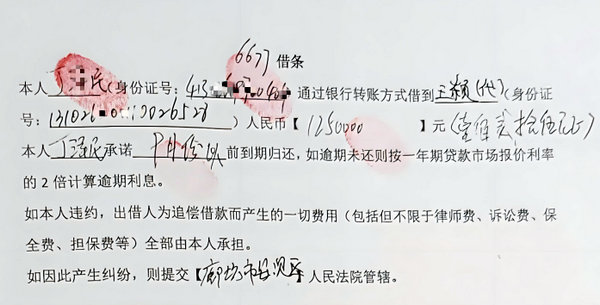 6677 借条
本人丁泽民(身份证号:413 0404)通过银行转账方式借到王颖(代)(身份证
号:131026 0026528)人民币【1250000】元(壹佰贰拾伍万元)
本人丁泽民承诺 前到期归还,如逾期未还则按一年期贷款市场报价利率
的 2 倍计算逾期利息。
如本人违约,出借人为追偿借款而产生的一切费用(包括但不限于律师费、诉讼费、保
全费、担保费等)全部由本人承担。
如因此产生纠纷,则提交【廊坊市 】人民法院管辖。